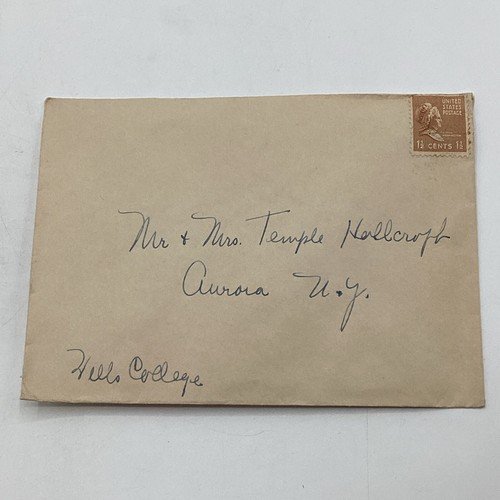 UNITED
STATES
POSTAGE
1½ CENTS 1½
Mr & Mrs. Temple Hollcroft
Aurora N.Y.
Wells College